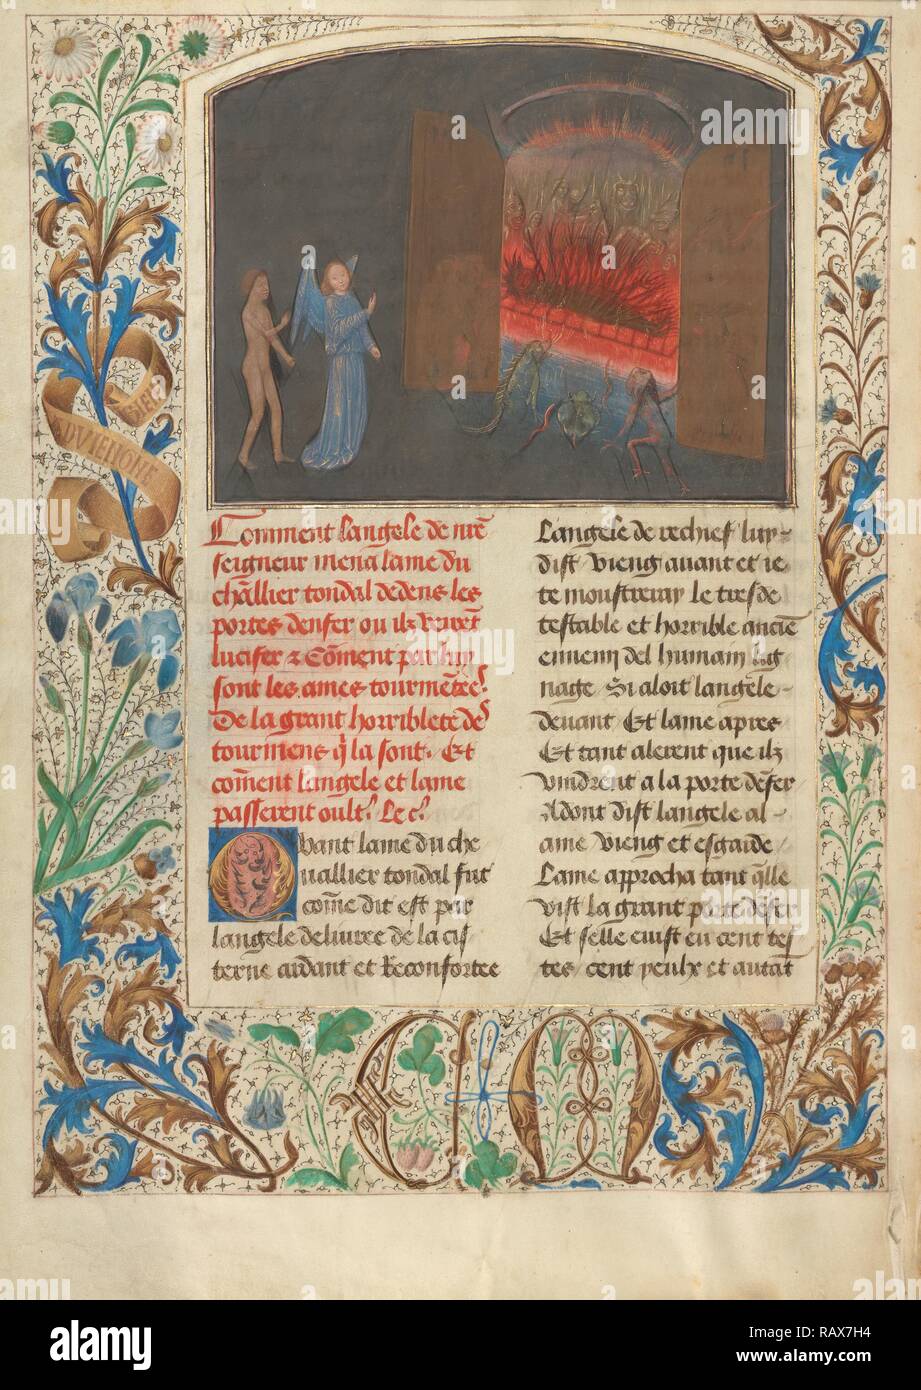 BIEN
DVIEIGNE
Comment langele de nr̄e
seigneur mena lame du
chl̄lier tondal dedens les
portes denfer ou ilz virent
lucifer & Cōment par luy
sont les ames tourmētees
De la grant horriblete des
tourmens q̄ la sont. Et
cōment langele et lame
passerent oultˢ. Le cˢ.
Quant lame du che
uallier tondal fut
cōme dit est par
langele deliuree de la cis
terne aidant et Reconfortee
Langele de rechief luy
dist Vieng auant et ie
te moustreray le tresde
testable et horrible anciē
ennemy del humain lig
nage Si aloit langele
deuant Et lame apres
Et tant alerent que ilz
vindrent a la porte dēfer
Adont dist langele al
ame Vieng et esgarde
Lame approcha tant q̄lle
vist la grant porte dēfer
Et selle euist eu cent tes
tes / cent yeulx et autāt
C M
a
alamy
alamy
Image ID: RAX7H4
www.alamy.com